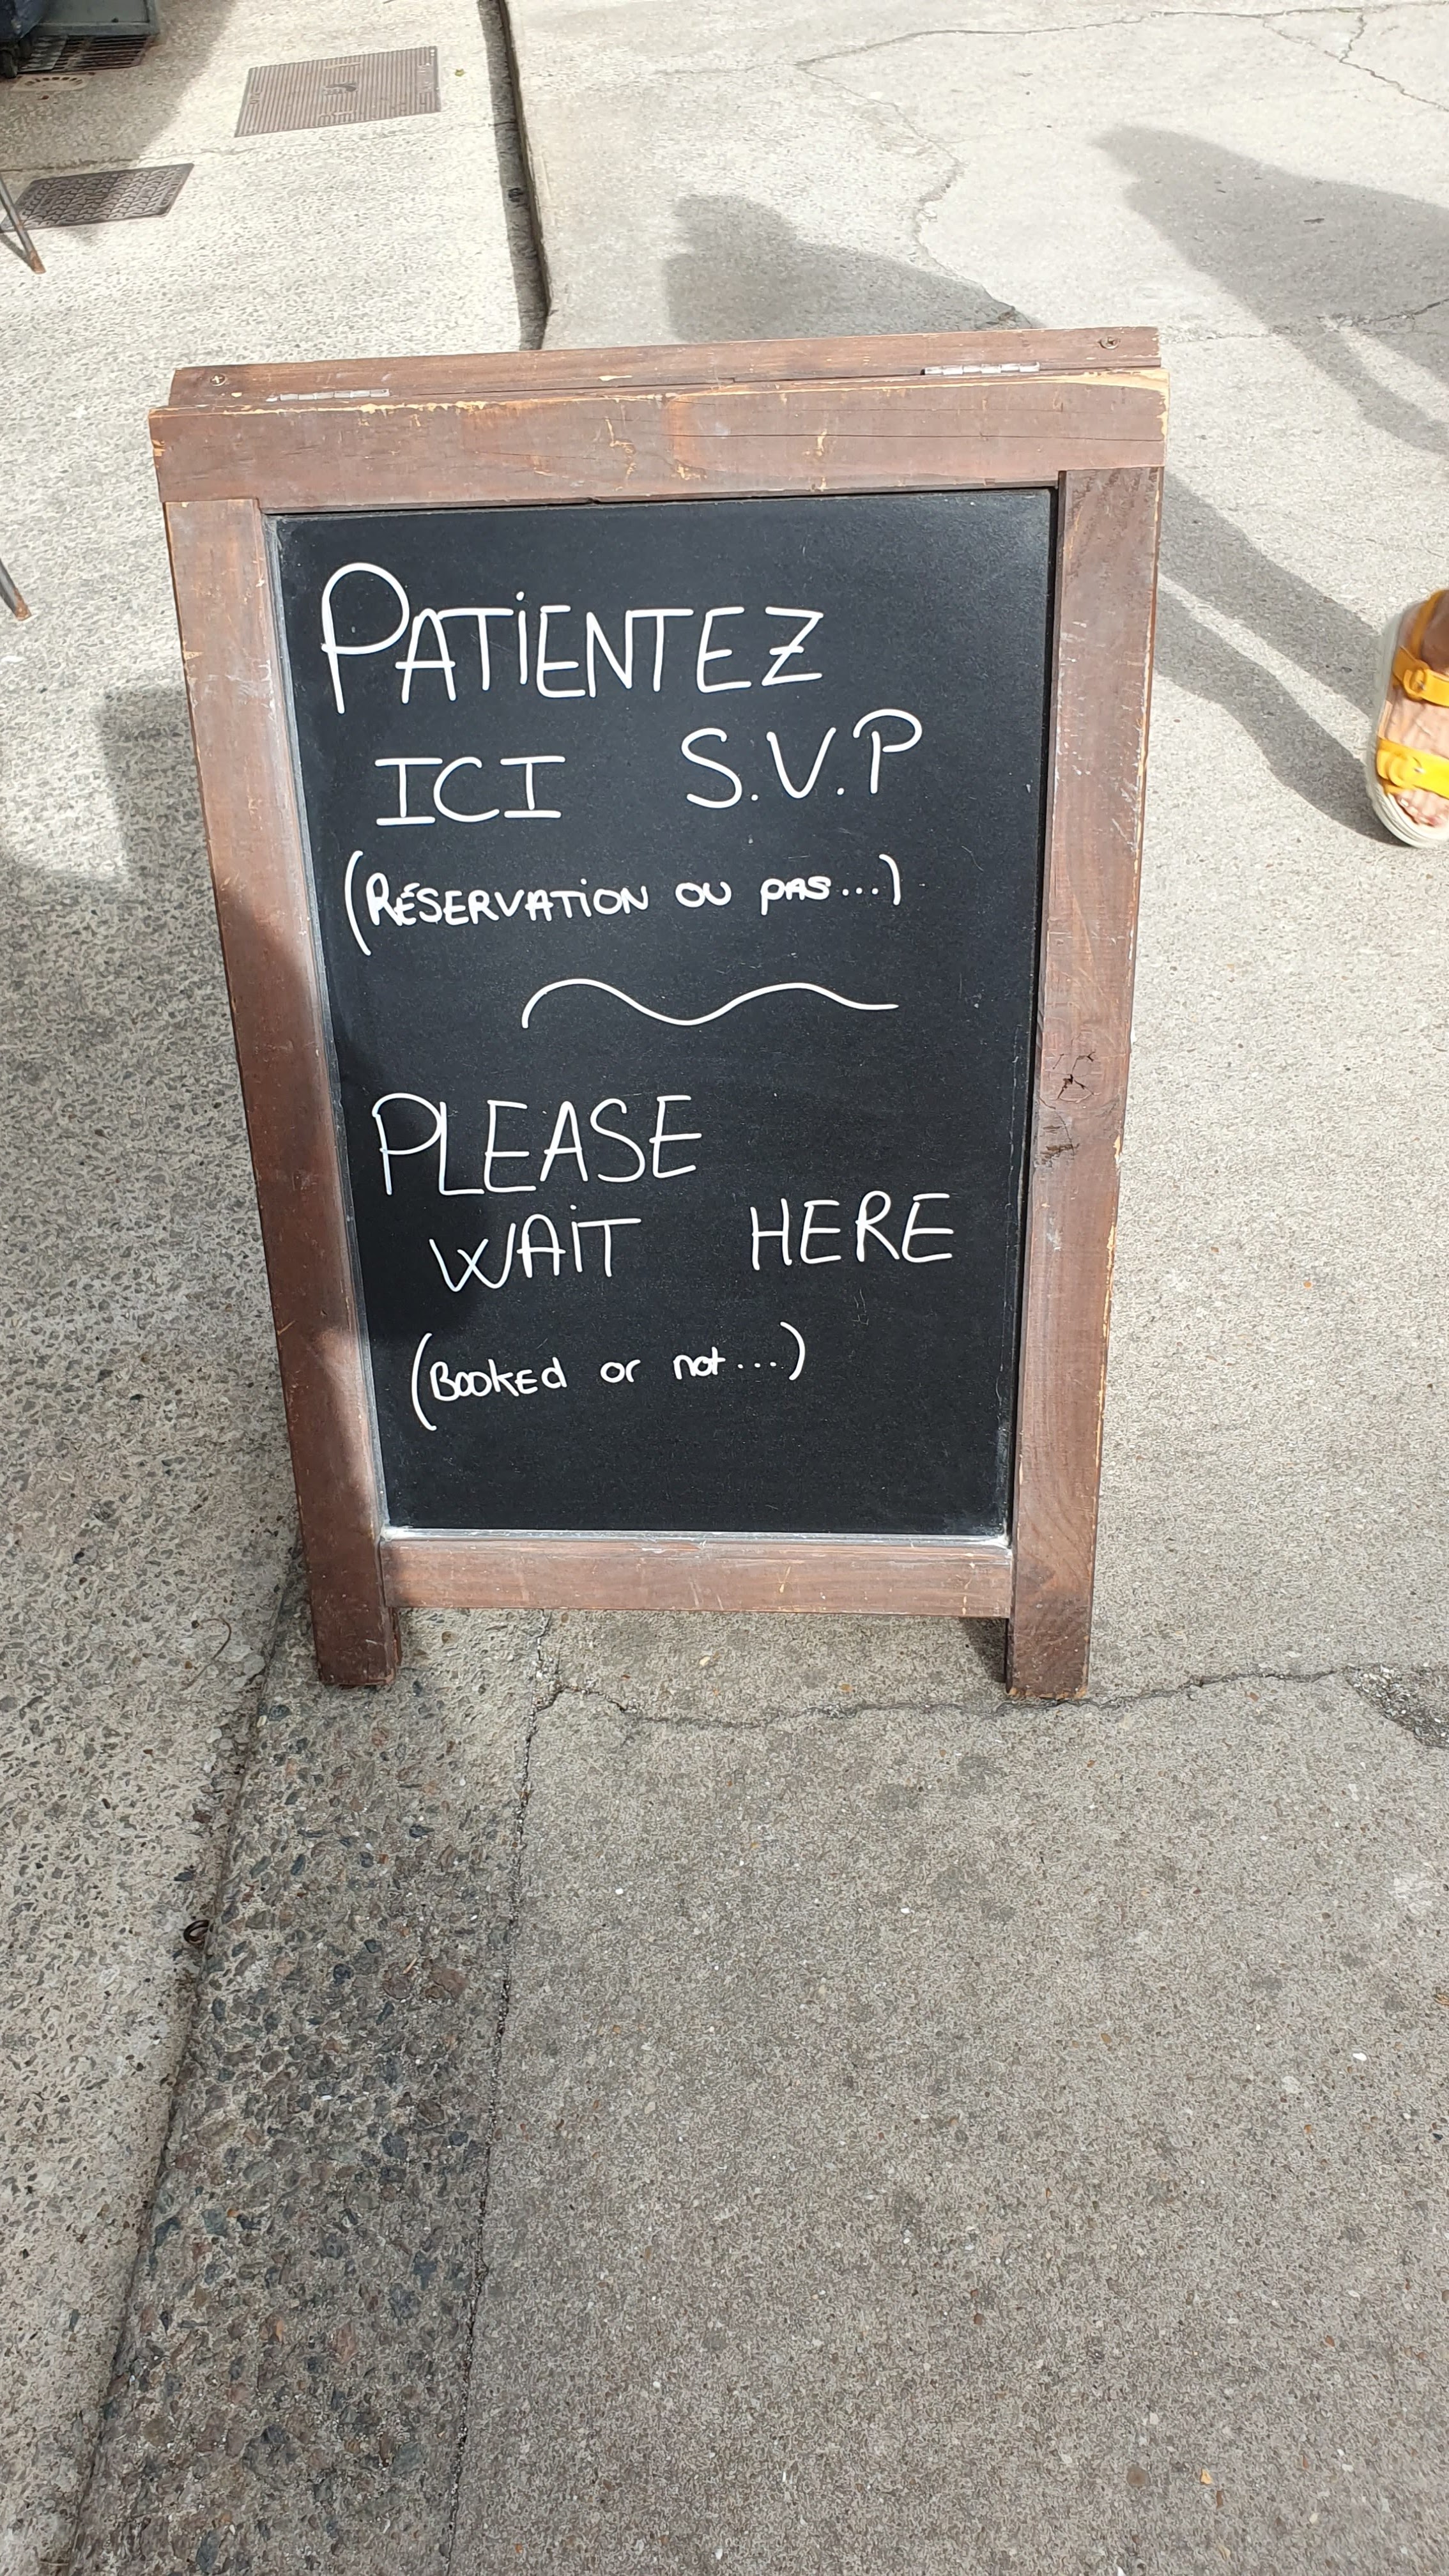 PATiENTEZ
ICI S.V.P
(RÉSERVATiON OU pAS...)
PLEASE
WAiT HERE
(BOOKEd or not....)